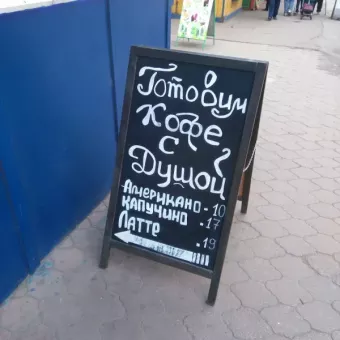 Готовим
Кофе
с
Душой
Американо - 10
Капучино - 17
Латте - 19